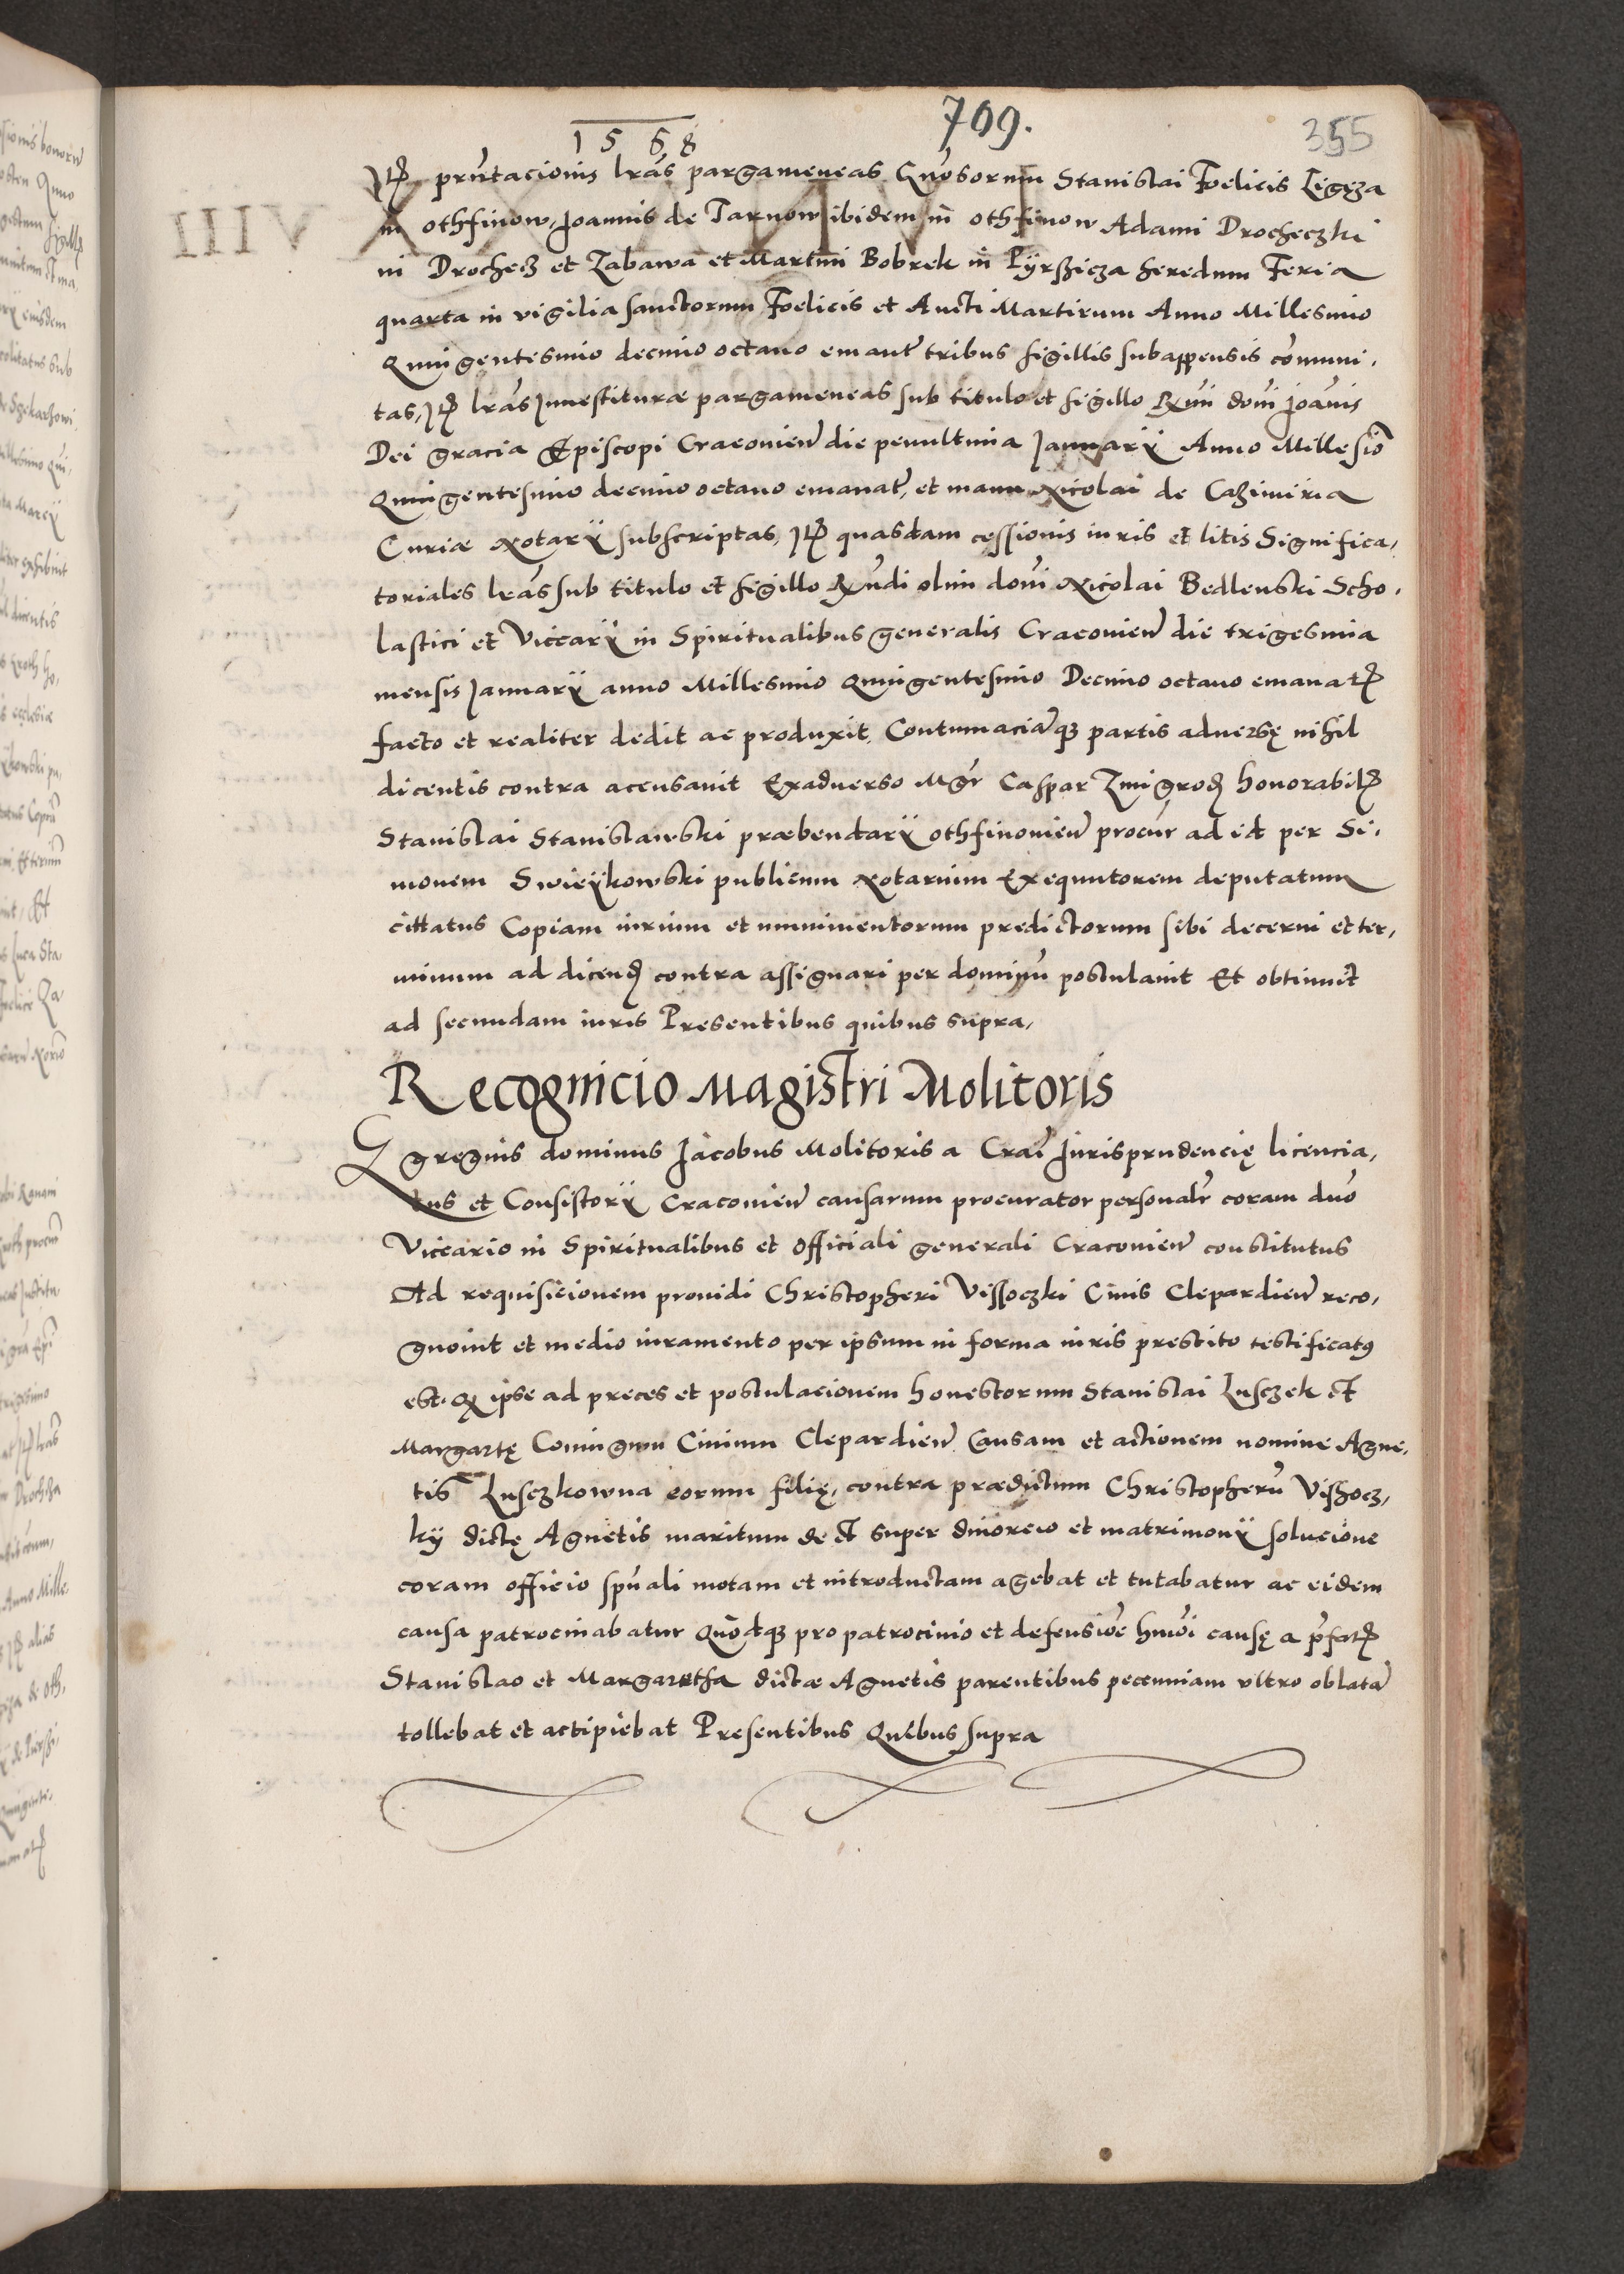 709.
355
1568
Itē prntacionis lras pargameneas Gnosorum Stanislai Foelicis Ligęza
in othfinow, Joannis de Tarnow ibidem in othfinow Adami Drocheczki
in Drochecz et Zabawa et Martini Bobrek in Pÿrszicza heredum Feria
quarta in vigilia sanctorum Foelicis et Aucti Martirum Anno Millesimo
Quingentesimo decimo octavo emanat tribus sigillis subappensis comuni,
tas, Itē lras Investituræ pargameneas sub titulo et sigillo Rmi domi Joanis
Dei gracia Episcopi Cracovien die penultima Januarÿ Anno Millesio
Quingentesimo decimo octavo emanat, et manu Nicolai de Cazimiria
Curiæ Notarÿ subscriptas, Itē quasdam cessionis iuris et litis Significa,
toriales lras sub titulo et sigillo Rndi olim doni Nicolai Bedlenski Scho,
lastici et Vicearÿ in Spiritualibus generalis Cracovien die trigesima
mensis Januarÿ anno Millesimo Quingentesimo Decimo octavo emanatē
facto et realiter dedit ac produxit, Contumaciāqȝ partis adversę nihil
dicentis contra acusavit Exadverso Mgr Caspar Zmigrod honorabilē
Stanislai Stanislawski præbendarÿ othfinovien procur ad id per Si,
monem Swieÿkowski publicum Notarium Exequutorem deputatum
cittatus Copiam iurium et munimentorum predictorum sibi decerni et ter,
minum ad dicend contra assignari per dominū postulavit Et obtinuit
ad secundam iuris Presentibus quibus supra,
Recognicio Magistri Molitoris
Egregius dominus Jacobus Molitoris a Craī Jurisprudencię licencia,
tus et Consistorÿ Cracovien causarum procurator personalr coram dno
Viceario in Spiritualibus et Officiali generali Cracovien constitutus
Ad requisicionem providi Christopheri Vissoczki Civis Clepardien reco,
gnovit et medio iuramento per ipsum in forma iuris prestito testificatꝯ
est. Qȝ ipse ad preces et postulacionem honestorum Stanislai Lusczek et
Margartę Coniugum Civium Clepardien Causam et actionem nomine Agne,
tis Lusczkowna eorum filię, contra prædictum Christopherū Vishocz,
kÿ dictę Agnetis maritum de et super divorcio et matrimonÿ solucione
coram officio spuali motam et introductam agebat et tutabatur ac eidem
causa patrocinabatur Quodqȝ pro patrocinio et defensioe huiōi causę a pfatē
Stanislao et Margaretha dictæ Agnetis parentibus pecunniam ultro oblatā
tollebat et actipiebat Presentibus Quibus supra